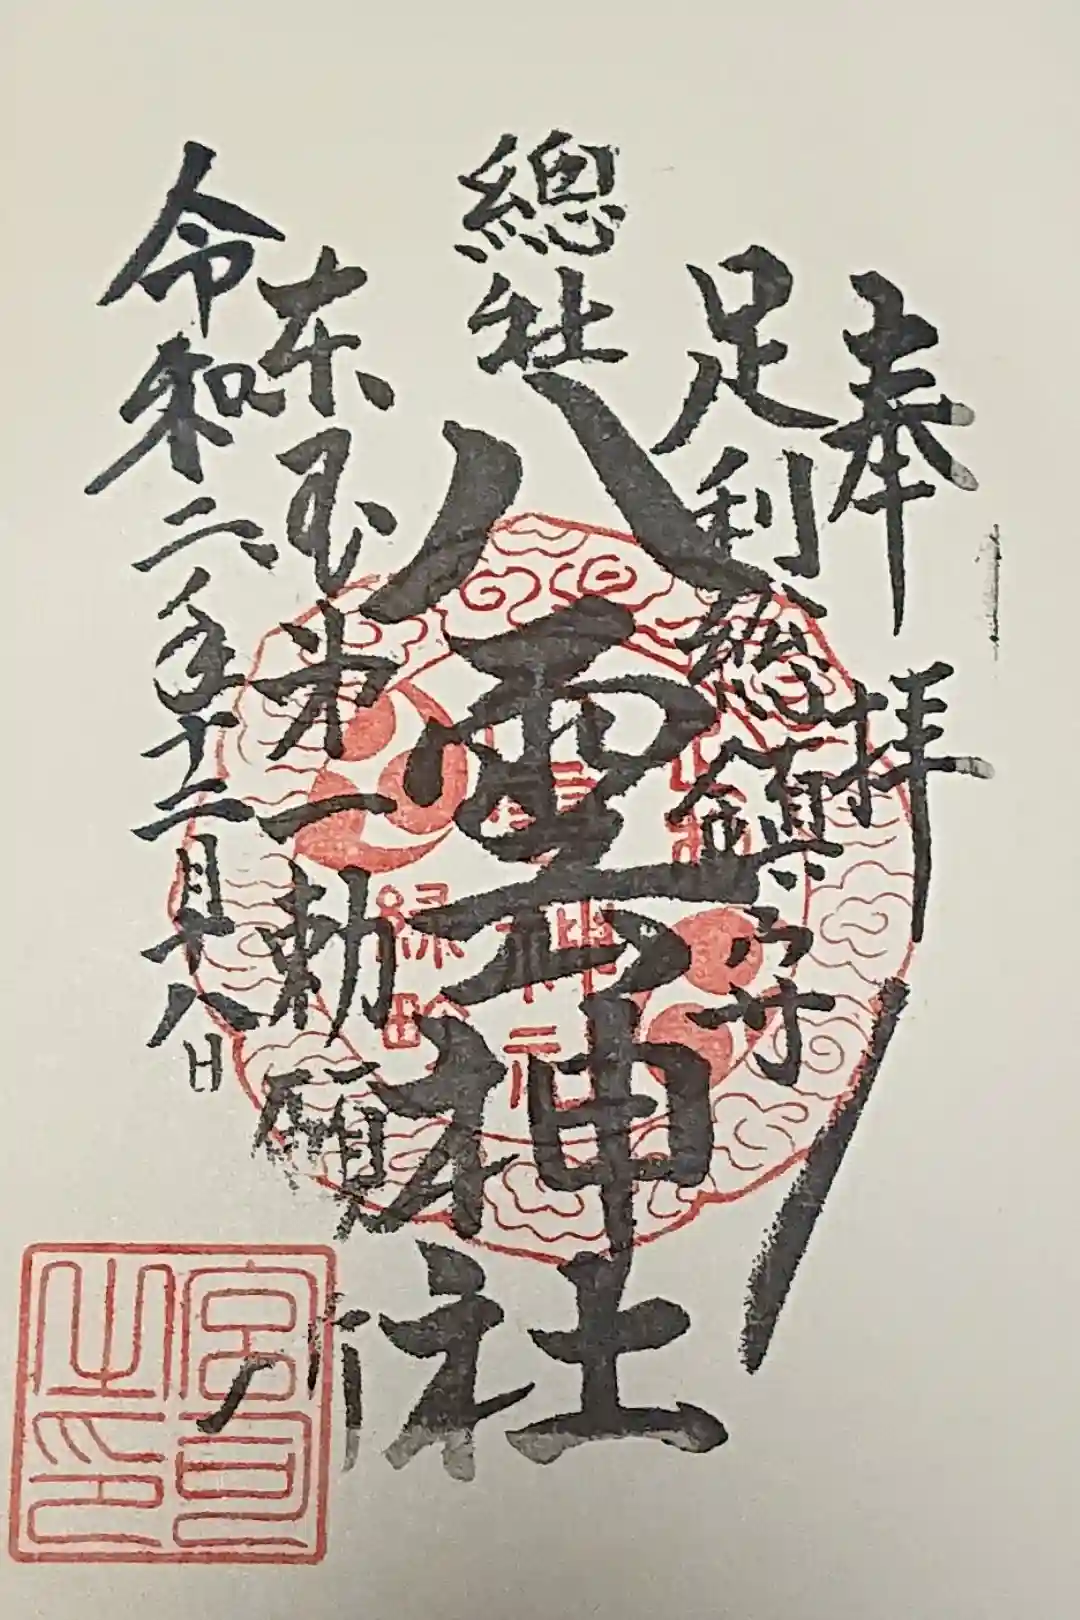 奉拝
足利総鎮守
總社
八雲神社
東国第一勅願所
令和二年十二月十八日
緑町
宮司之印